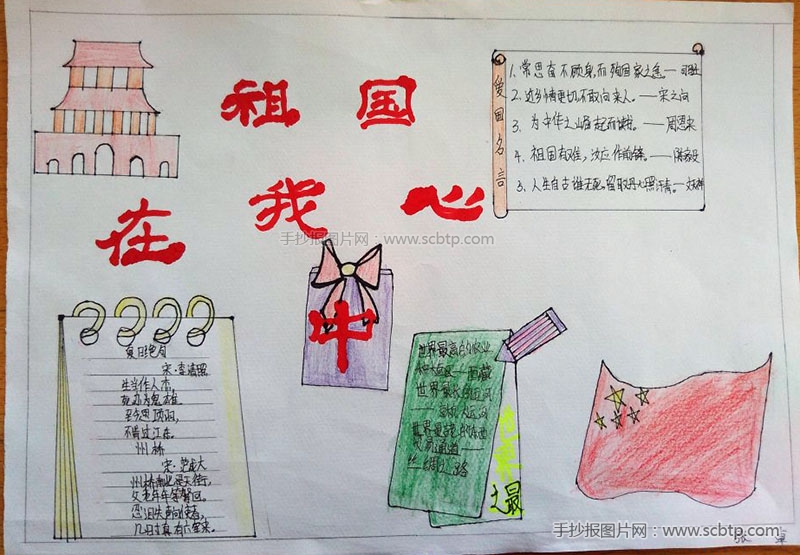 祖国
在我心
中
爱国名言
1. 常思奋不顾身,而殉国家之急。——司
2. 近乡情更切,不敢问来人。——宋之问
3. 为中华之崛起而读书。——周恩来
4. 祖国有难,汝应作前锋。——陈毅
人生自古谁无死,留取丹心照汗青。——文天祥
手抄报图片网:www.scbtp.com
夏日绝句
宋·李清照
生当作人杰,
死亦为鬼雄。
至今思项羽,
不肯过江东。
州桥
宋·范成大
州桥南北是天街,
父老年年等驾回。
忍泪失声询使者,
几时真有六军来。
世界最高的
西藏
世界最长的运河
——京杭大运河
世界最早的东西
贸易通道——
丝绸之路
世界之最
手抄报图片网:www.scbtp.com